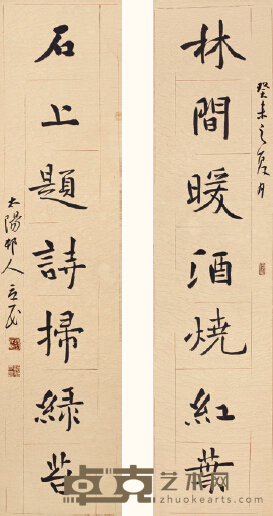 林間暖酒燒紅葉
癸未之夏月
石上題詩掃綠苔
太陽邨人立民
卓克艺术网
zhuokearts.com